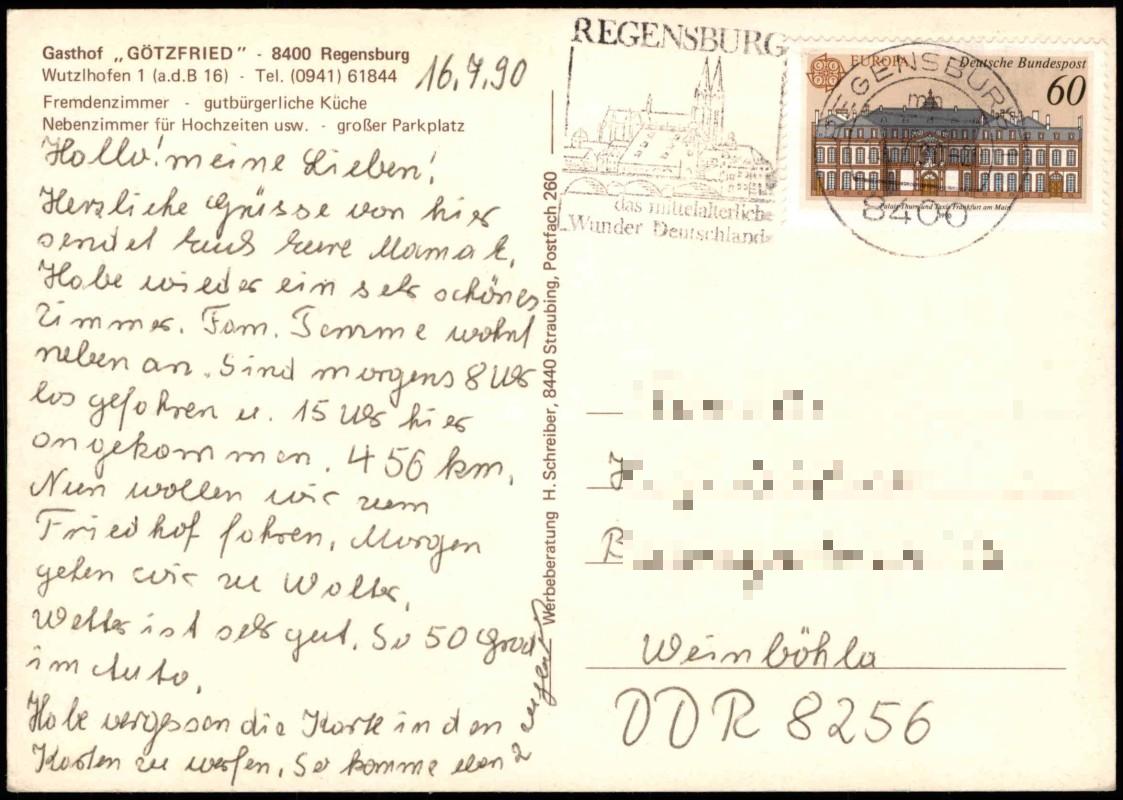 Gasthof „GÖTZFRIED" - 8400 Regensburg
Wutzlhofen 1 (a.d.B 16) - Tel. (0941) 61844
16.7.90
Fremdenzimmer - gutbürgerliche Küche
Nebenzimmer für Hochzeiten usw. - großer Parkplatz
Hallo! meine Lieben!
Herzliche Grüsse von hier
sendet Euch Eure Mama
Habe wieder ein sehr schönes
Zimmer. Fam. wohnt
neben an. Sind morgens 8 Uhr
los gefahren u. 15 Uhr hier
angekommen. 456 km.
Nun wollen wir zum
Friedhof fahren. Morgen
gehen wir zu Walter.
Wetter ist sehr gut. So 50 Grad
im Auto.
Habe vergessen die Karte in den
Kasten zu werfen. So komme
Werbeberatung H. Schreiber, 8440 Straubing, Postfach 260
REGENSBURG
das mittelalterliche
„Wunder Deutschlands
EUROPA Deutsche Bundespost
60
Palais Thurn und Taxis Frankfurt am Main
REGENSBURG
8400
Weinböhla
DDR 8256